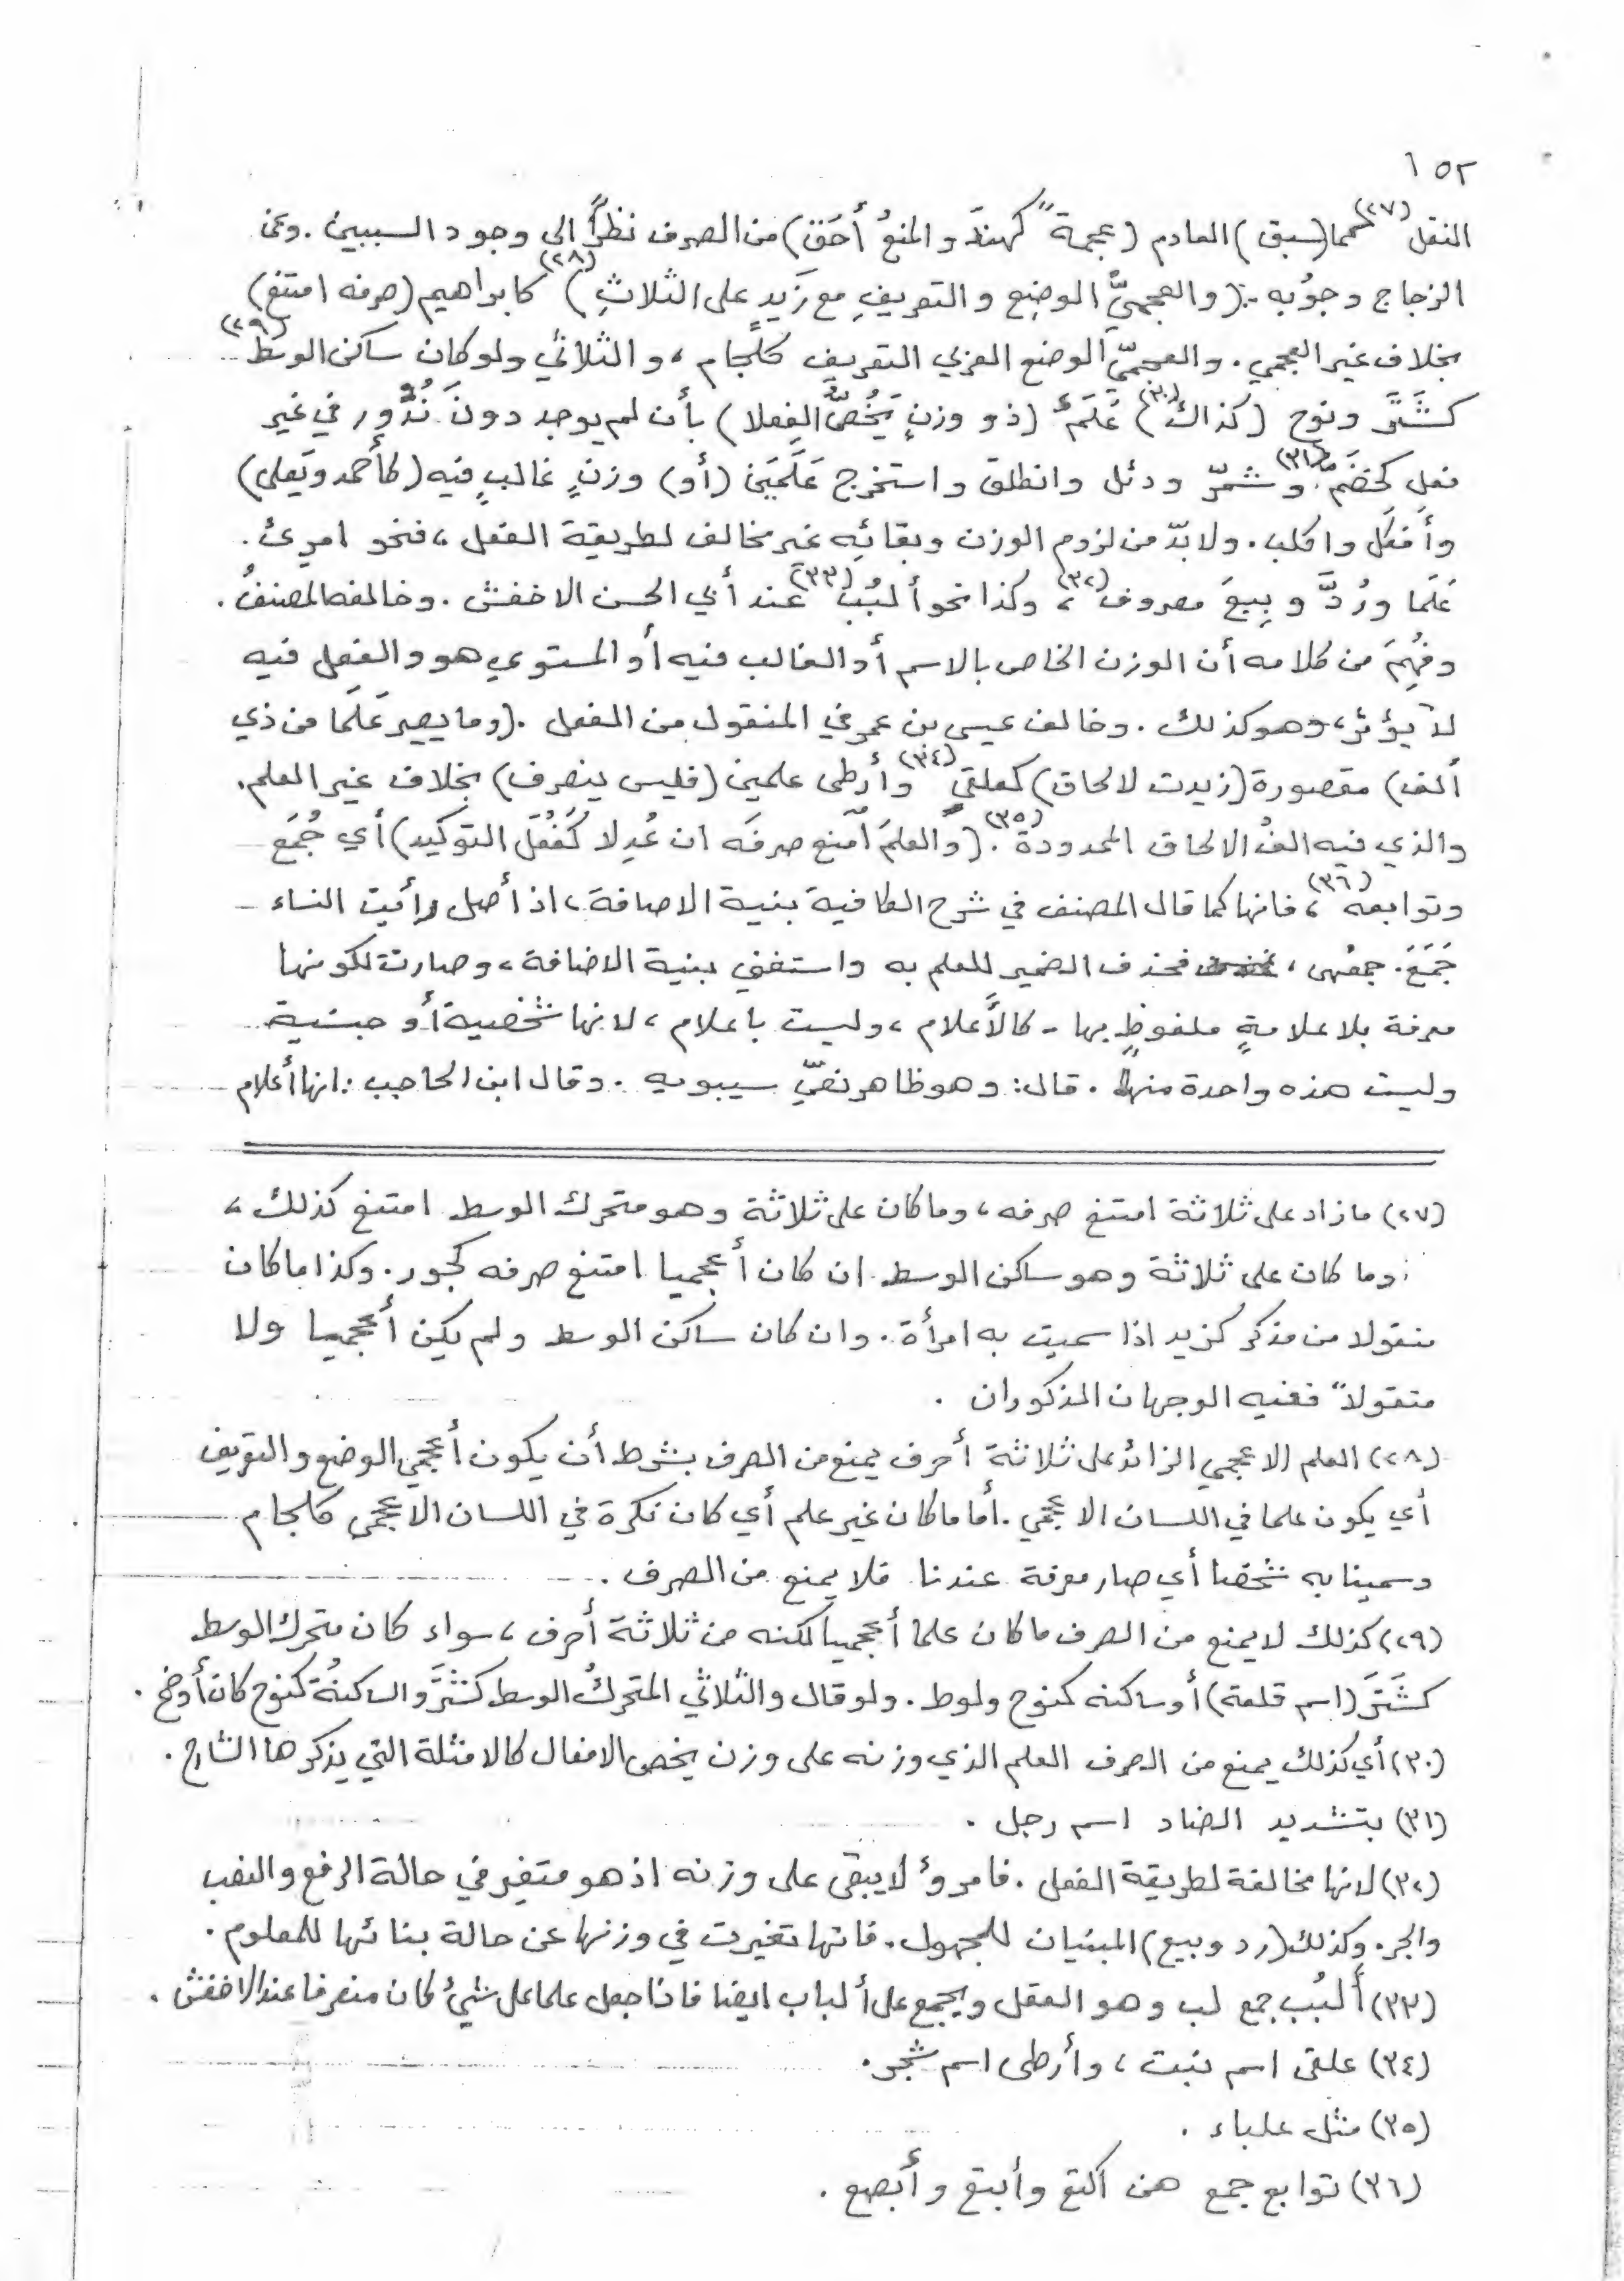 ١٥٢
النقل(٢٧) مما (سبق) العادم (عجمةً كهندَ والمنعُ أَحَق) من الصرف نظراً الى وجود السببين. وعن
الزجاج وجوبُه .: (والعجميُّ الوضِعِ والتعريفِ مع زَيدٍ على الثلاثِ)(٢٨) كابراهيم (صرفه امتنع)
بخلاف غير العجمي. والعجميّ الوضع العربي التعريف كلجام، والثلاثي ولو كان ساكن الوسط(٢٩)
كشَتَرَ ونوح (كذاك)(٣٠) عَلَمٌ (ذو وزنٍ يَخُصُّ الفِعلا) بأن لم يوجد دونَ نُدُور في غير
فعلٍ كخضَّمَ(٣١) وشمّر ودئل وانطلق واستخرج عَلَمَين (أو) وزنٍ غالبٍ فيه (كأحمد ويَعلى)
وأَفكَل واكلب. ولا بدّ من لزوم الوزن وبقائِه غير مخالف لطريقة الفعل، فنحو امرئ.
عَلَما ورُدَّ وبِيعَ مصروف(٣٢)، وكذا نحو ألبُب(٣٣) عند أبي الحسن الاخفش. وخالفه المصنفُ.
وفُهِمَ من كلامه أن الوزن الخاص بالاسم أو الغالب فيه أو المستوي هو والفعل فيه
لا يؤثر، وهو كذلك. وخالف عيسى بن عمر في المنقول من الفعل. (وما يصير عَلَما من ذي
ألف) مقصورة (زيدت لالحاق) كعلقى(٣٤) وأرطى علمين (فليس ينصرف) بخلاف غير العلم.
والذي فيه الفُ الالحاق الممدودة(٣٥). (والعلمَ امنع صرفَه ان عُدِلا كَفُعَل التوكيد) أي جُمَع
وتوابعه(٣٦)، فانها كما قال المصنف في شرح الكافية بنية الاضافة، اذ أصل رأيت النساء
جُمَعَ. جمعهن، فحذف الضمير للعلم به واستغني بنية الاضافة، وصارت لكونها
معرفة بلا علامةٍ ملفوظٍ بها - كالأَعلام، وليست باعلام، لانها شخصية أو جنسية
وليست هذه واحدة منها. قال: وهو ظاهر نصّ سيبويه. وقال ابن الحاجب: انها أعلام
(٢٧) ما زاد على ثلاثة امتنع صرفه، وما كان على ثلاثة وهو متحرك الوسط امتنع كذلك،
وما كان على ثلاثة وهو ساكن الوسط ان كان أعجميا امتنع صرفه كجور. وكذا ما كان
منقولا من مذكر كزيد اذا سميت به امرأة. وان كان ساكن الوسط ولم يكن أعجميا ولا
منقولاً ففيه الوجهان المذكوران.
(٢٨) العلم الاعجمي الزائد على ثلاثة أحرف يمنع من الصرف بشرط أن يكون أعجمي الوضع والتعريف
أي يكون علما في اللسان الاعجمي. أما ما كان غير علم أي كان نكرة في اللسان الاعجمى كلجام
وسمينا به شخصا أي صار معرفة عندنا فلا يمنع من الصرف.
(٢٩) كذلك لا يمنع من الصرف ما كان علما أعجميا لكنه من ثلاثة أحرف، سواء كان متحرك الوسط
كشَتَرَ (اسم قلعة) أو ساكنه كنوح ولوط. ولو قال والثلاثي المتحركُ الوسط كشترَ والساكنةُ كنوح كان أوضح.
(٣٠) أي كذلك يمنع من الصرف العلم الذي وزنه على وزن يخص الافعال كالامثلة التي يذكرها الشارح.
(٣١) بتشديد الضاد اسم رجل.
(٣٢) لانها مخالفة لطريقة الفعل. فامرؤ لا يبقى على وزنه اذ هو متغير في حالة الرفع والنصب
والجر. وكذلك (رد وبيع) المبنيان للمجهول. فانها تغيرت في وزنها عن حالة بنائها للمعلوم.
(٣٣) أَلبُب جمع لب وهو العقل ويجمع على ألباب ايضا فاذا جعل علما على شيءٍ كان منصرفا عند الاخفش.
(٣٤) علقى اسم نبت، وأرطى اسم شجر.
(٣٥) مثل علباء.
(٣٦) توابع جمع هن أكتع وأبتع وأبصع.